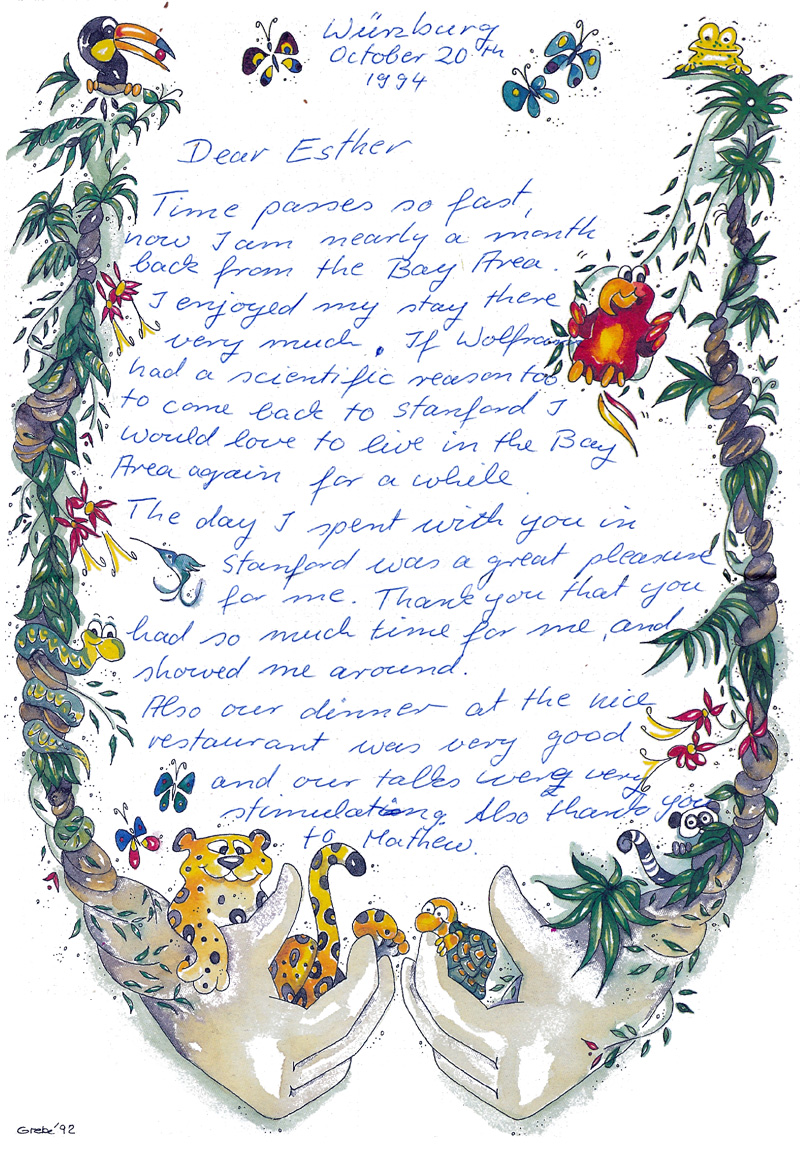 Würzburg
October 20th
1994
Dear Esther
Time passes so fast,
now I am nearly a month
back from the Bay Area.
I enjoyed my stay there
very much. If Wolfram
had a scientific reason too
to come back to Stanford I
would love to live in the Bay
Area again for a while
The day I spent with you in
Stanford was a great pleasure
for me. Thank you that you
had so much time for me, and
showed me around.
Also our dinner at the nice
restaurant was very good
and our talks were very
stimulating. Also thank you
to Mathew.
Grebe '92